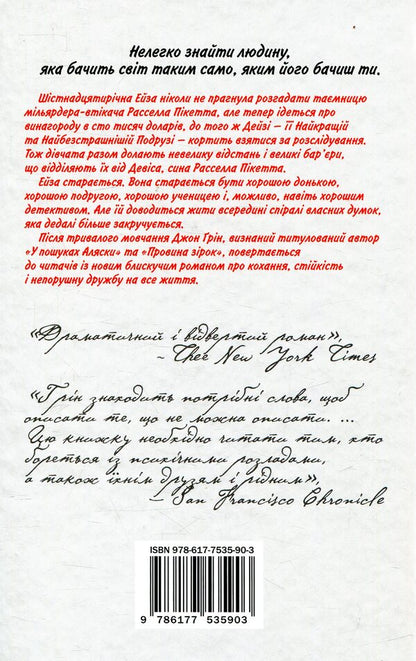 Нелегко знайти людину,
яка бачить світ таким само, яким його бачиш ти.
Шістнадцятирічна Ейза ніколи не прагнула розгадати таємницю
мільярдера-втікача Расселла Пікетта, але тепер ідеться про
винагороду в сто тисяч доларів, до того ж Дейзі – її Найкращій
та Найбезстрашнішій Подрузі – кортить взятися за розслідування.
Тож дівчата разом долають невелику відстань і великі бар'єри,
що відділяють їх від Девіса, сина Расселла Пікетта.
Ейза старається. Вона старається бути хорошою донькою,
хорошою подругою, хорошою ученицею і, можливо, навіть хорошим
детективом. Але їй доводиться жити всередині спіралі власних думок,
яка дедалі більше закручується.
Після тривалого мовчання Джон Ґрін, визнаний титулований автор
«У пошуках Аляски» та «Провина зірок», повертається
до читачів із новим блискучим романом про кохання, стійкість
і непорушну дружбу на все життя.
«Драматичний і відвертий роман»,
– Thee New York Times
«Ґрін знаходить потрібні слова, щоб
описати те, що не можна описати. ...
Цю книжку необхідно читати тим, хто
бореться із психічними розладами,
а також їхнім друзям і рідним»,
– San Francisco Chronicle
ISBN 978-617-7535-90-3
9 786177 535903